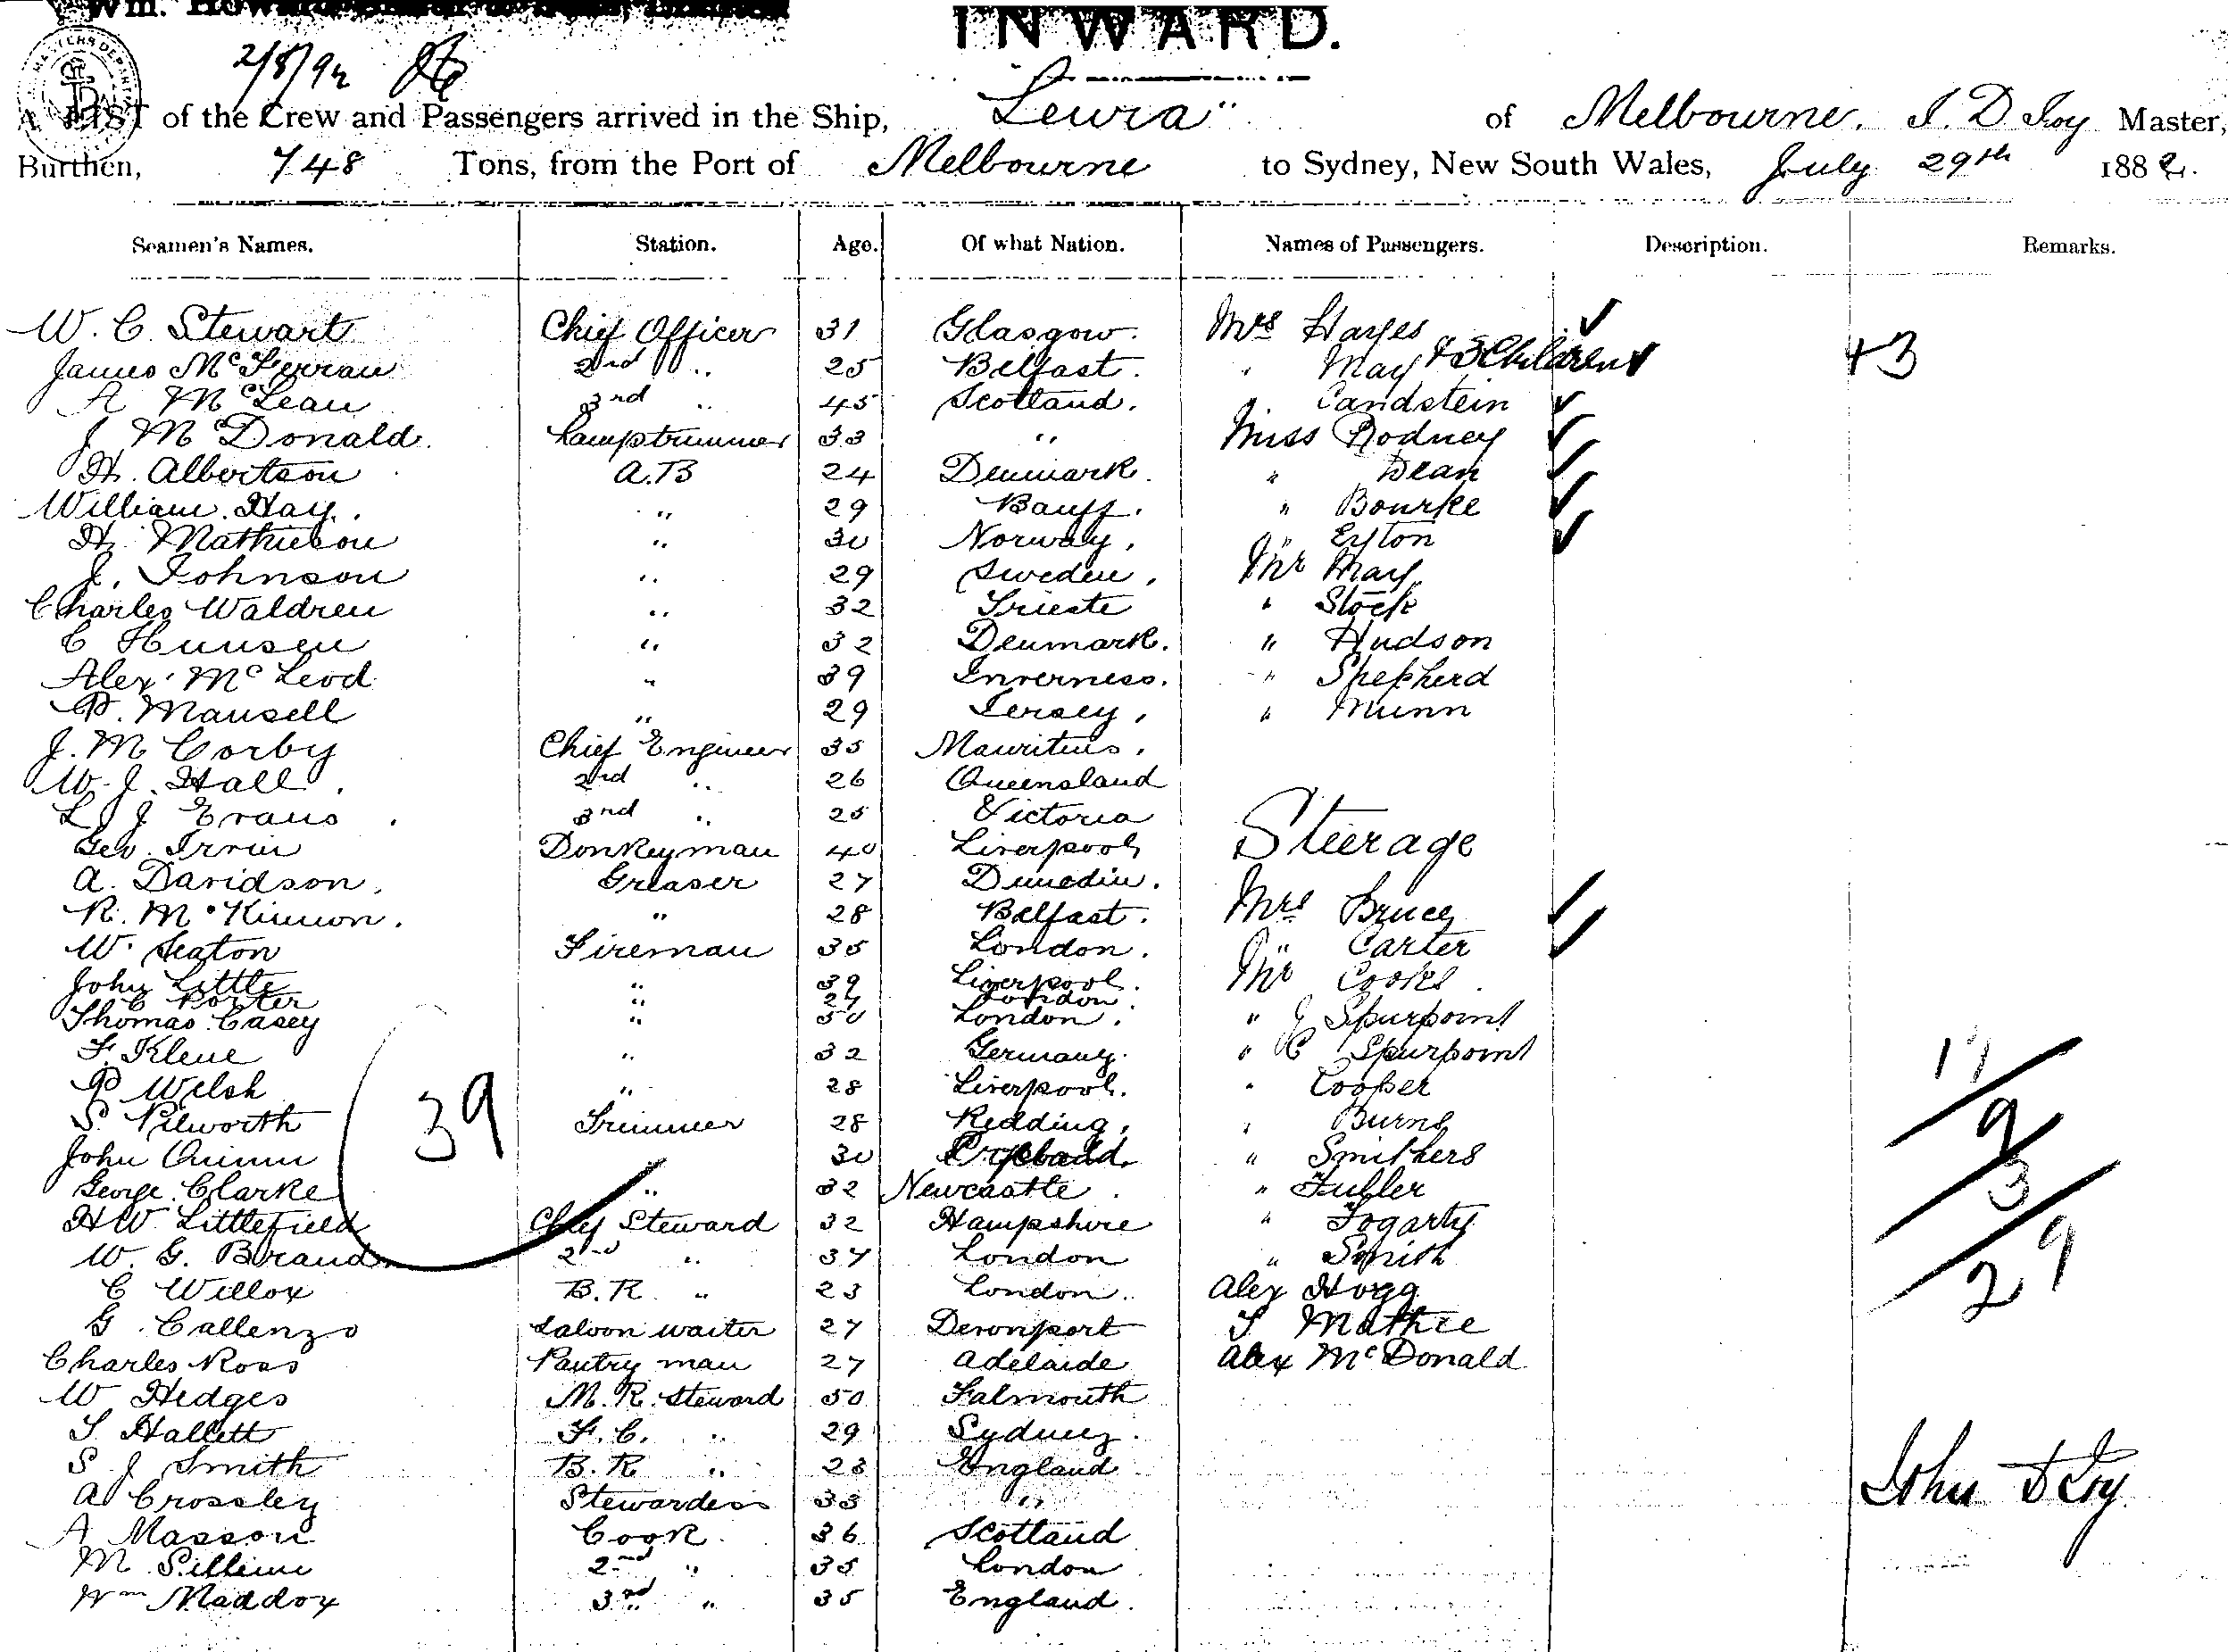 INWARD.
2/8/92
A LIST of the Crew and Passengers arrived in the Ship, Leura" of Melbourne. J. D. Loy Master,
Burthen, 748 Tons, from the Port of Melbourne to Sydney, New South Wales, July 29th 1882.
Seamen's Names. Station. Age. Of what Nation. Names of Passengers. Description. Remarks.
W. C. Stewart Chief Officer 31 Glasgow. Mrs Hayes
James McFerran 2nd " 25 Belfast. " May & 3 Children +3
A McLean 3rd " 45 Scotland. " Candstein
J McDonald. Lamptrimmer 33 " Miss Rodney
H. Albertson A.B 24 Denmark. " Dean
William Hay. " 29 Banff. " Bourke
H. Mathieson " 30 Norway. " Eyton
J. Johnson " 29 Sweden. Mr May
Charles Waldren " 32 Trieste " Stock
C Hunsen " 32 Denmark. " Hudson
Alex McLeod " 39 Inverness. " Shepherd
P. Mansell " 29 Jersey. " Munn
J. M Corby Chief Engineer 35 Mauritius.
W. J. Hall. 2nd " 26 Queensland
L J Evans. 3rd " 25 Victoria
Geo. Irvin Donkeyman 40 Liverpool Steerage
A. Davidson. Greaser 27 Dunedin.
R. McKinnon. " 28 Belfast. Mrs Bruce
W. Seaton Fireman 35 London. " Carter
John Little " 39 Liverpool. Mr Cooks
C Porter " 27 London.
Thomas Casey " 50 London. " J Spurpoint
F. Klene " 32 Germany. " C Spurpoint
P Welsh " 28 Liverpool. " Cooper
S. Pilworth Trimmer 28 Redding. " Burns
John Quinn " 30 " Smithers
George Clarke " 32 Newcastle. " Fuller
H W. Littlefield Chief Steward 32 Hampshire " Fogarty
W. G. Brand 2nd " 37 London " Smith
C Willox B.R. " 23 London. Alex Hogg
G. Callenzo Saloon waiter 27 Devonport T Mathie
Charles Ross Pantry man 27 Adelaide Alex McDonald
W Hedges M. R. Steward 50 Falmouth
T. Hallett F. C. " 29 Sydney.
S. J Smith B. R " 23 England
A Crossley Stewardess 33 "
A Masson Cook. 36 Scotland
M. Sillini 2nd " 35 London
Wm Maddox 3rd " 35 England.
39
17
9
3
29
John D Loy